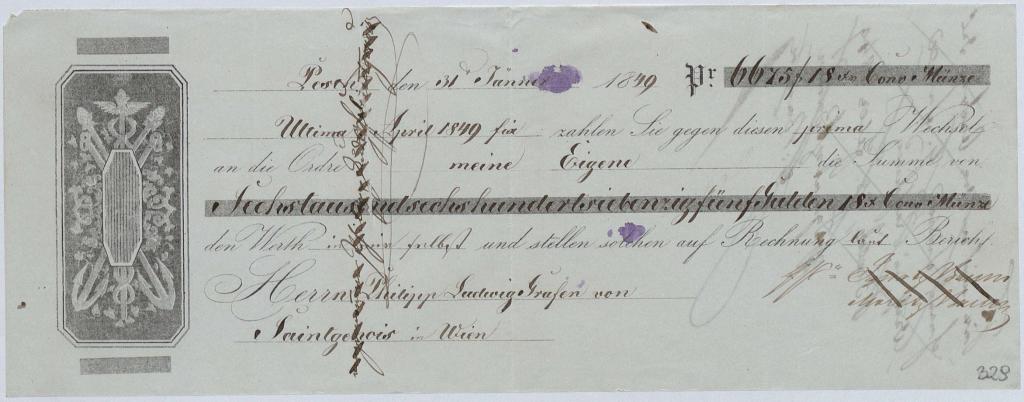 Pesth den 31 Jänner 1849 Pr 6675 f 18 x Conv Münze
Ultima April 1849 fix zahlen Sie gegen diesen prima Wechsel
an die Ordre meine Eigene die Summe von
Sechstausendsechshundertsiebenzigfünf Gulden 18 x Conv Münze
den Werth in mir selbst und stellen solchen auf Rechnung laut Bericht
Herrn Philipp Ludwig Grafen von
Saintgenois in Wien
329